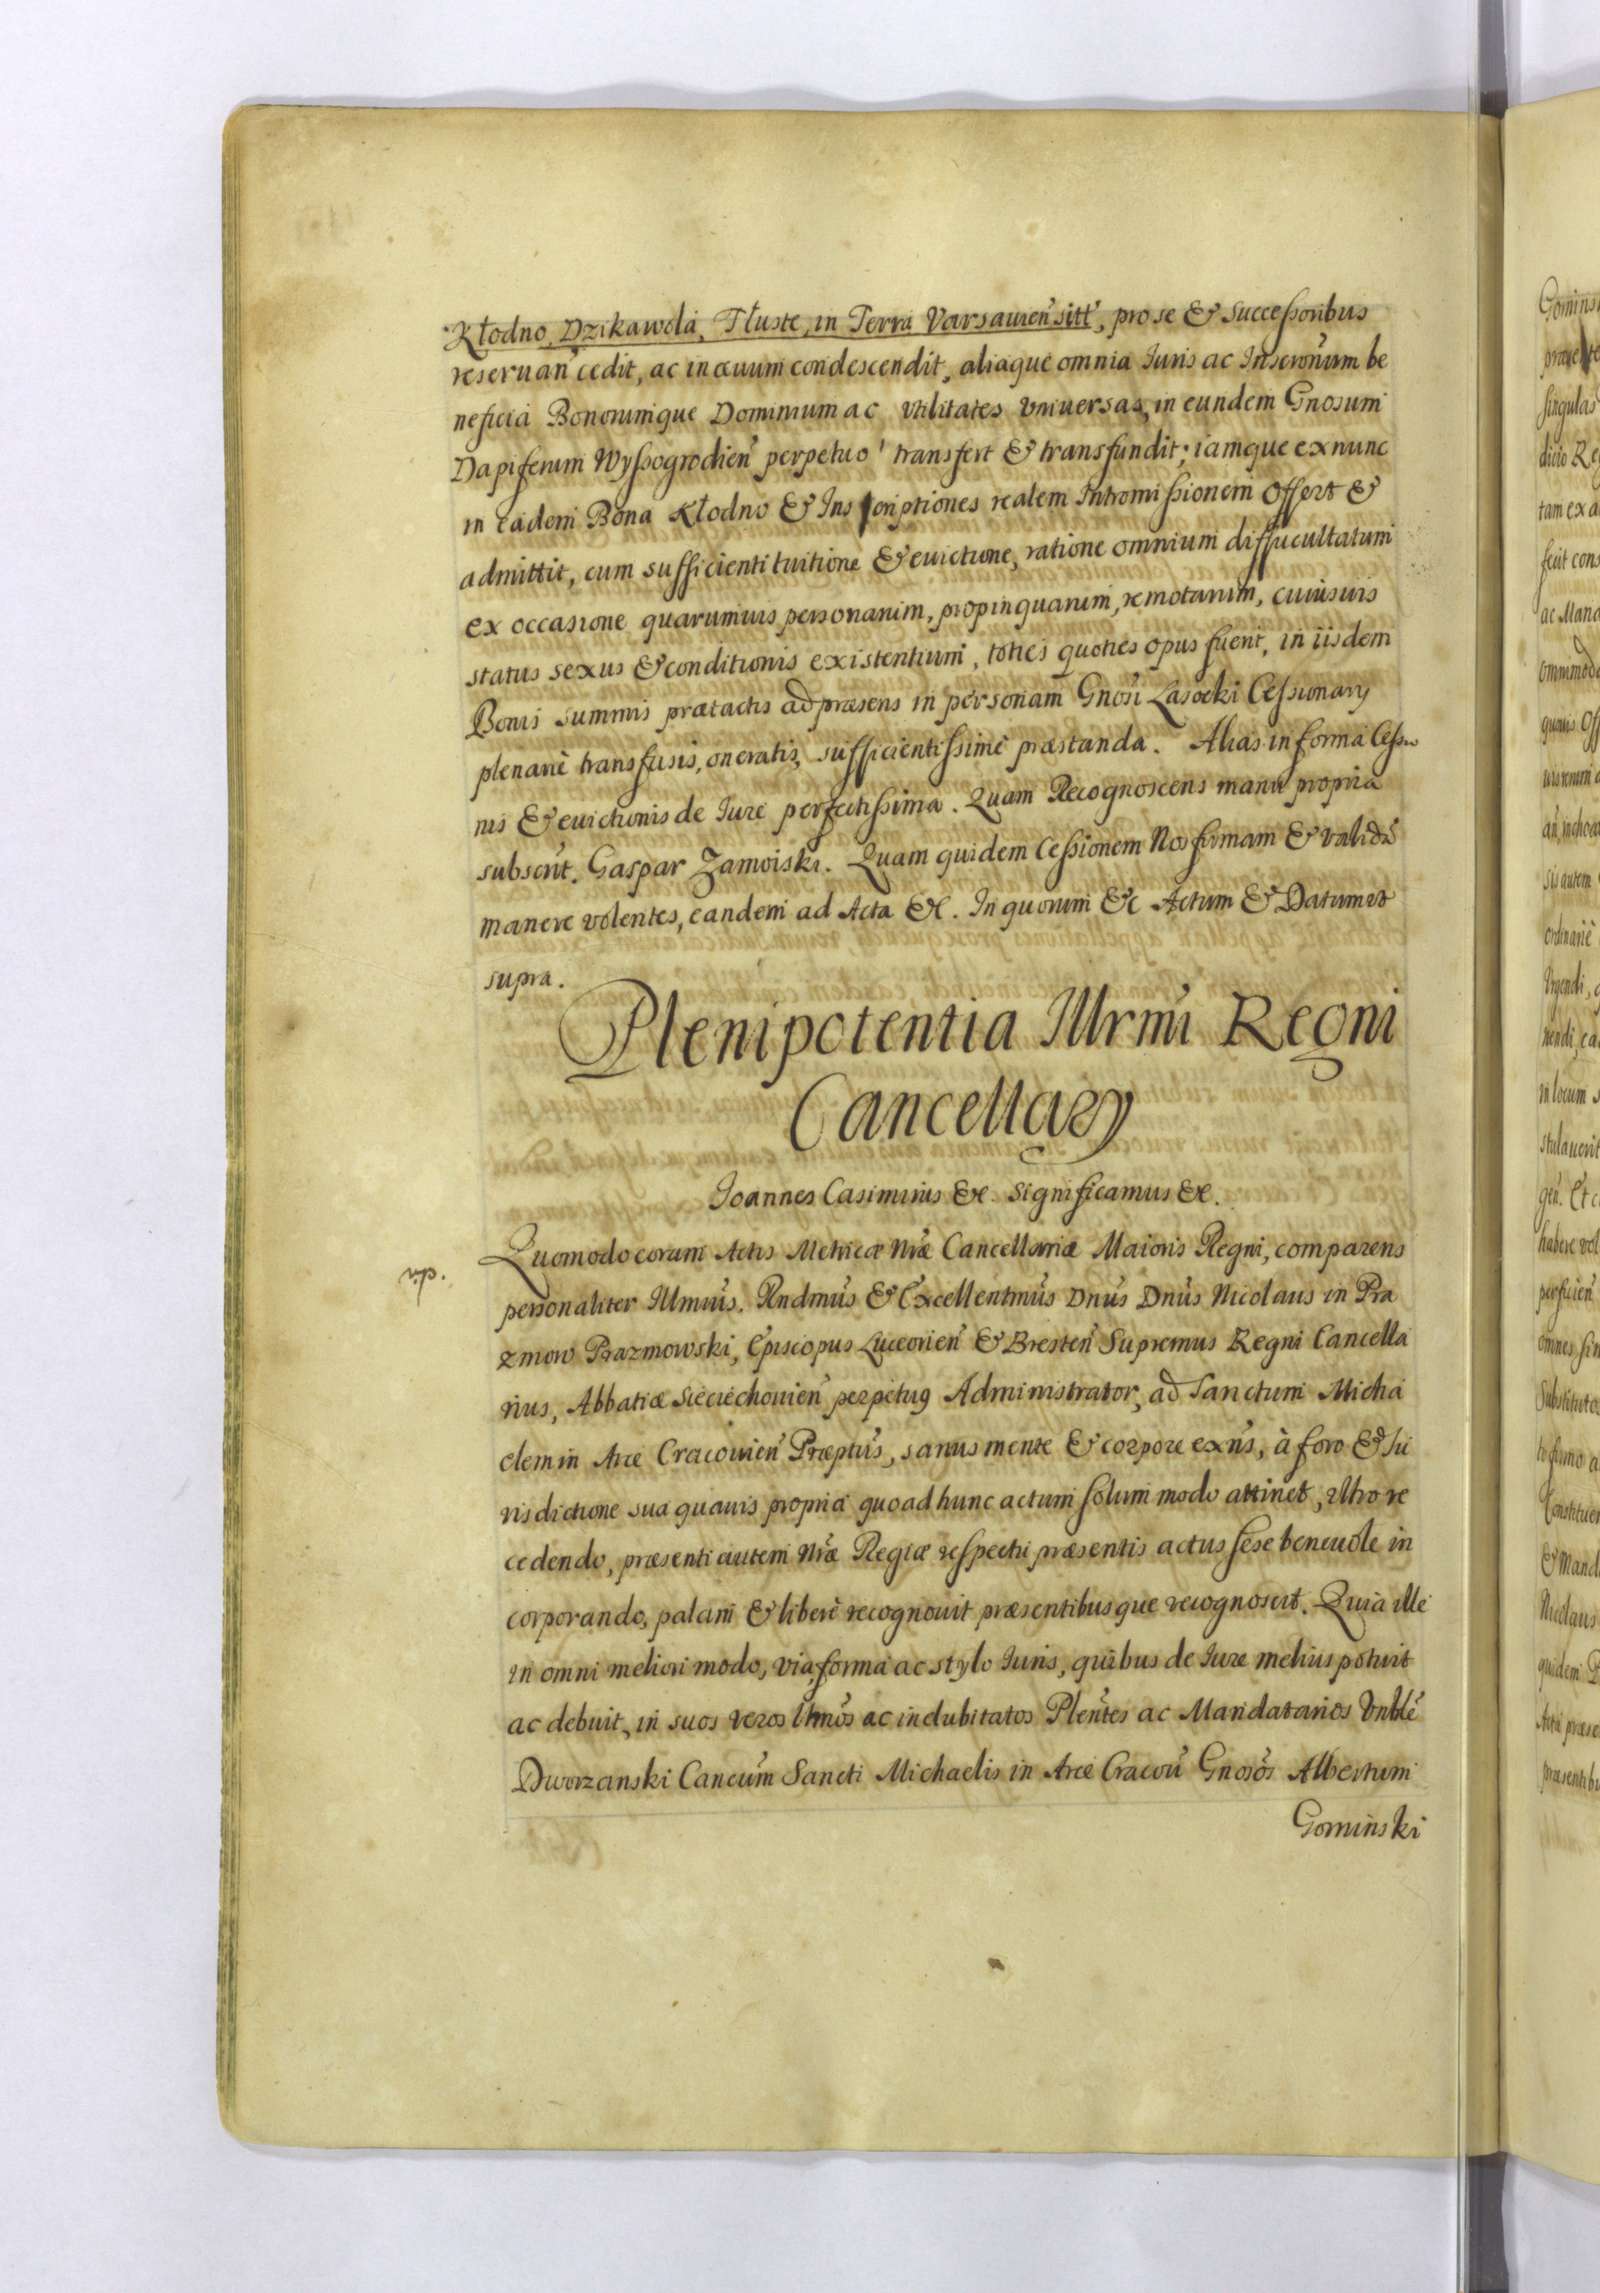 Kłodno, Dzikawola, Tłuste, in Terra Varsauień sitt', pro se & Successoribus
reseruań cedit, ac in æuum condescendit, aliaque omnia Iuris ac Inscrońum be
neficia Bonorumque Dominium ac vtilitates vniuersas, in eundem Gnosum
Dapiferum Wyssogrodień perpetuo transfert & transfundit; iamque ex nunc
in eadem Bona Kłodno & Inscriptiones realem Intromissionem offert &
admittit, cum sufficienti tuitione & euictione, ratione omnium difficultatum
ex occasione quarumuis personarum, propinquarum, remotarum, cuiusuis
status sexus & conditionis existentium, toties quoties opus fuerit, in iisdem
Bonis summis prætactis ad præsens in personam Gnosi Lasocki Cessionarij
plenariè transfusis, oneratis, sufficientissimè præstanda. Alias in forma Cessio
nis & euictionis de Iure perfectissima. Quam Recognoscens manu propria
subscrit. Gaspar Zamoiski. Quam quidem Cessionem Nos firmam & validã
manere volentes, eandem ad Acta &c. In quorum &c Actum & Datum vt
supra.
Plenipotentia Illrmi Regni
Cancellarij
Ioannes Casimirus &c. Significamus &c.
Quomodo coram Actis Metricæ Nræ Cancellariæ Maioris Regni, comparens
personaliter Illmus. Rndmus & Excellentmus Dnus Dnus Nicolaus in Pra
zmow Prazmowski, Episcopus Luceorień & Bresteń Supremus Regni Cancella
rius, Abbatiæ Sieciechouień perpetuus Administrator, ad Sanctum Micha
elem in Arce Cracouień Præptus, sanus mente & corpore exñs, à foro & Iu
risdictione sua quauis propria quo ad hunc actum solummodo attinet, vltro re
cedendo, præsenti autem Nræ Regiæ respectu præsentis actus sese beneuole in
corporando, palam & liberè recognouit præsentibusque recognoscit. Quia ille
in omni meliori modo, via, forma ac stylo Iuris, quibus de Iure melius potuit
ac debuit, in suos veros lttmos ac indubitatos Pleńtes ac Mandatarios Vnblẽ
Dworzanski Canoum Sancti Michaelis in Arce Cracou Gnosos Albertum
Gominski